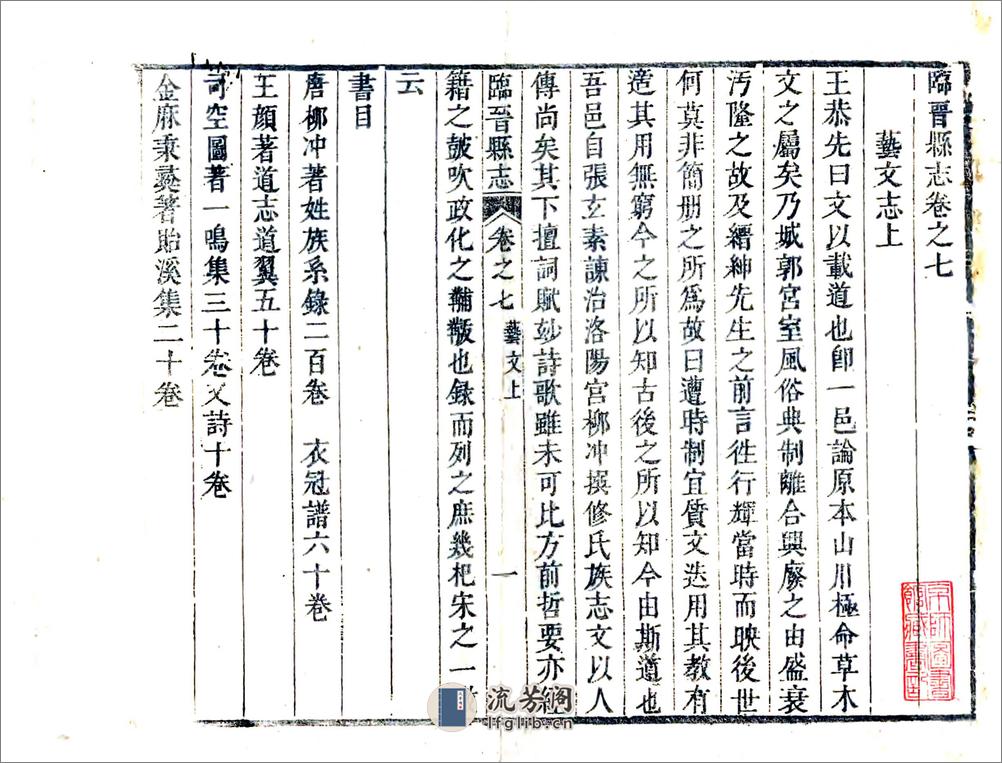 臨晉縣志卷之七
藝文志上
王恭先曰文以載道也卽一邑論原本山川極命草木
文之屬矣乃城郭宮室風俗典制離合興廢之由盛衰
汚隆之故及縉紳先生之前言徃行輝當時而映後世
何莫非簡册之所爲故曰遭時制宜質文迭用其教有
適其用無窮今之所以知古後之所以知今由斯道也
吾邑自張玄素諫治洛陽宮柳冲撰修氏族志文以人
傳尚矣其下擅詞賦玅詩歌雖未可比方前哲要亦經
臨晉縣志 卷之七 藝文上 一
籍之鼓吹政化之黼黻也録而列之庶幾杞宋之一
云
書目
唐柳冲著姓族系錄二百卷 衣冠譜六十卷
王顔著道志道翼五十卷
司空圖著一鳴集三十卷又詩十卷
金麻秉彞著貽溪集二十卷
京師圖書館藏書
流芳阁
lfglib.cn